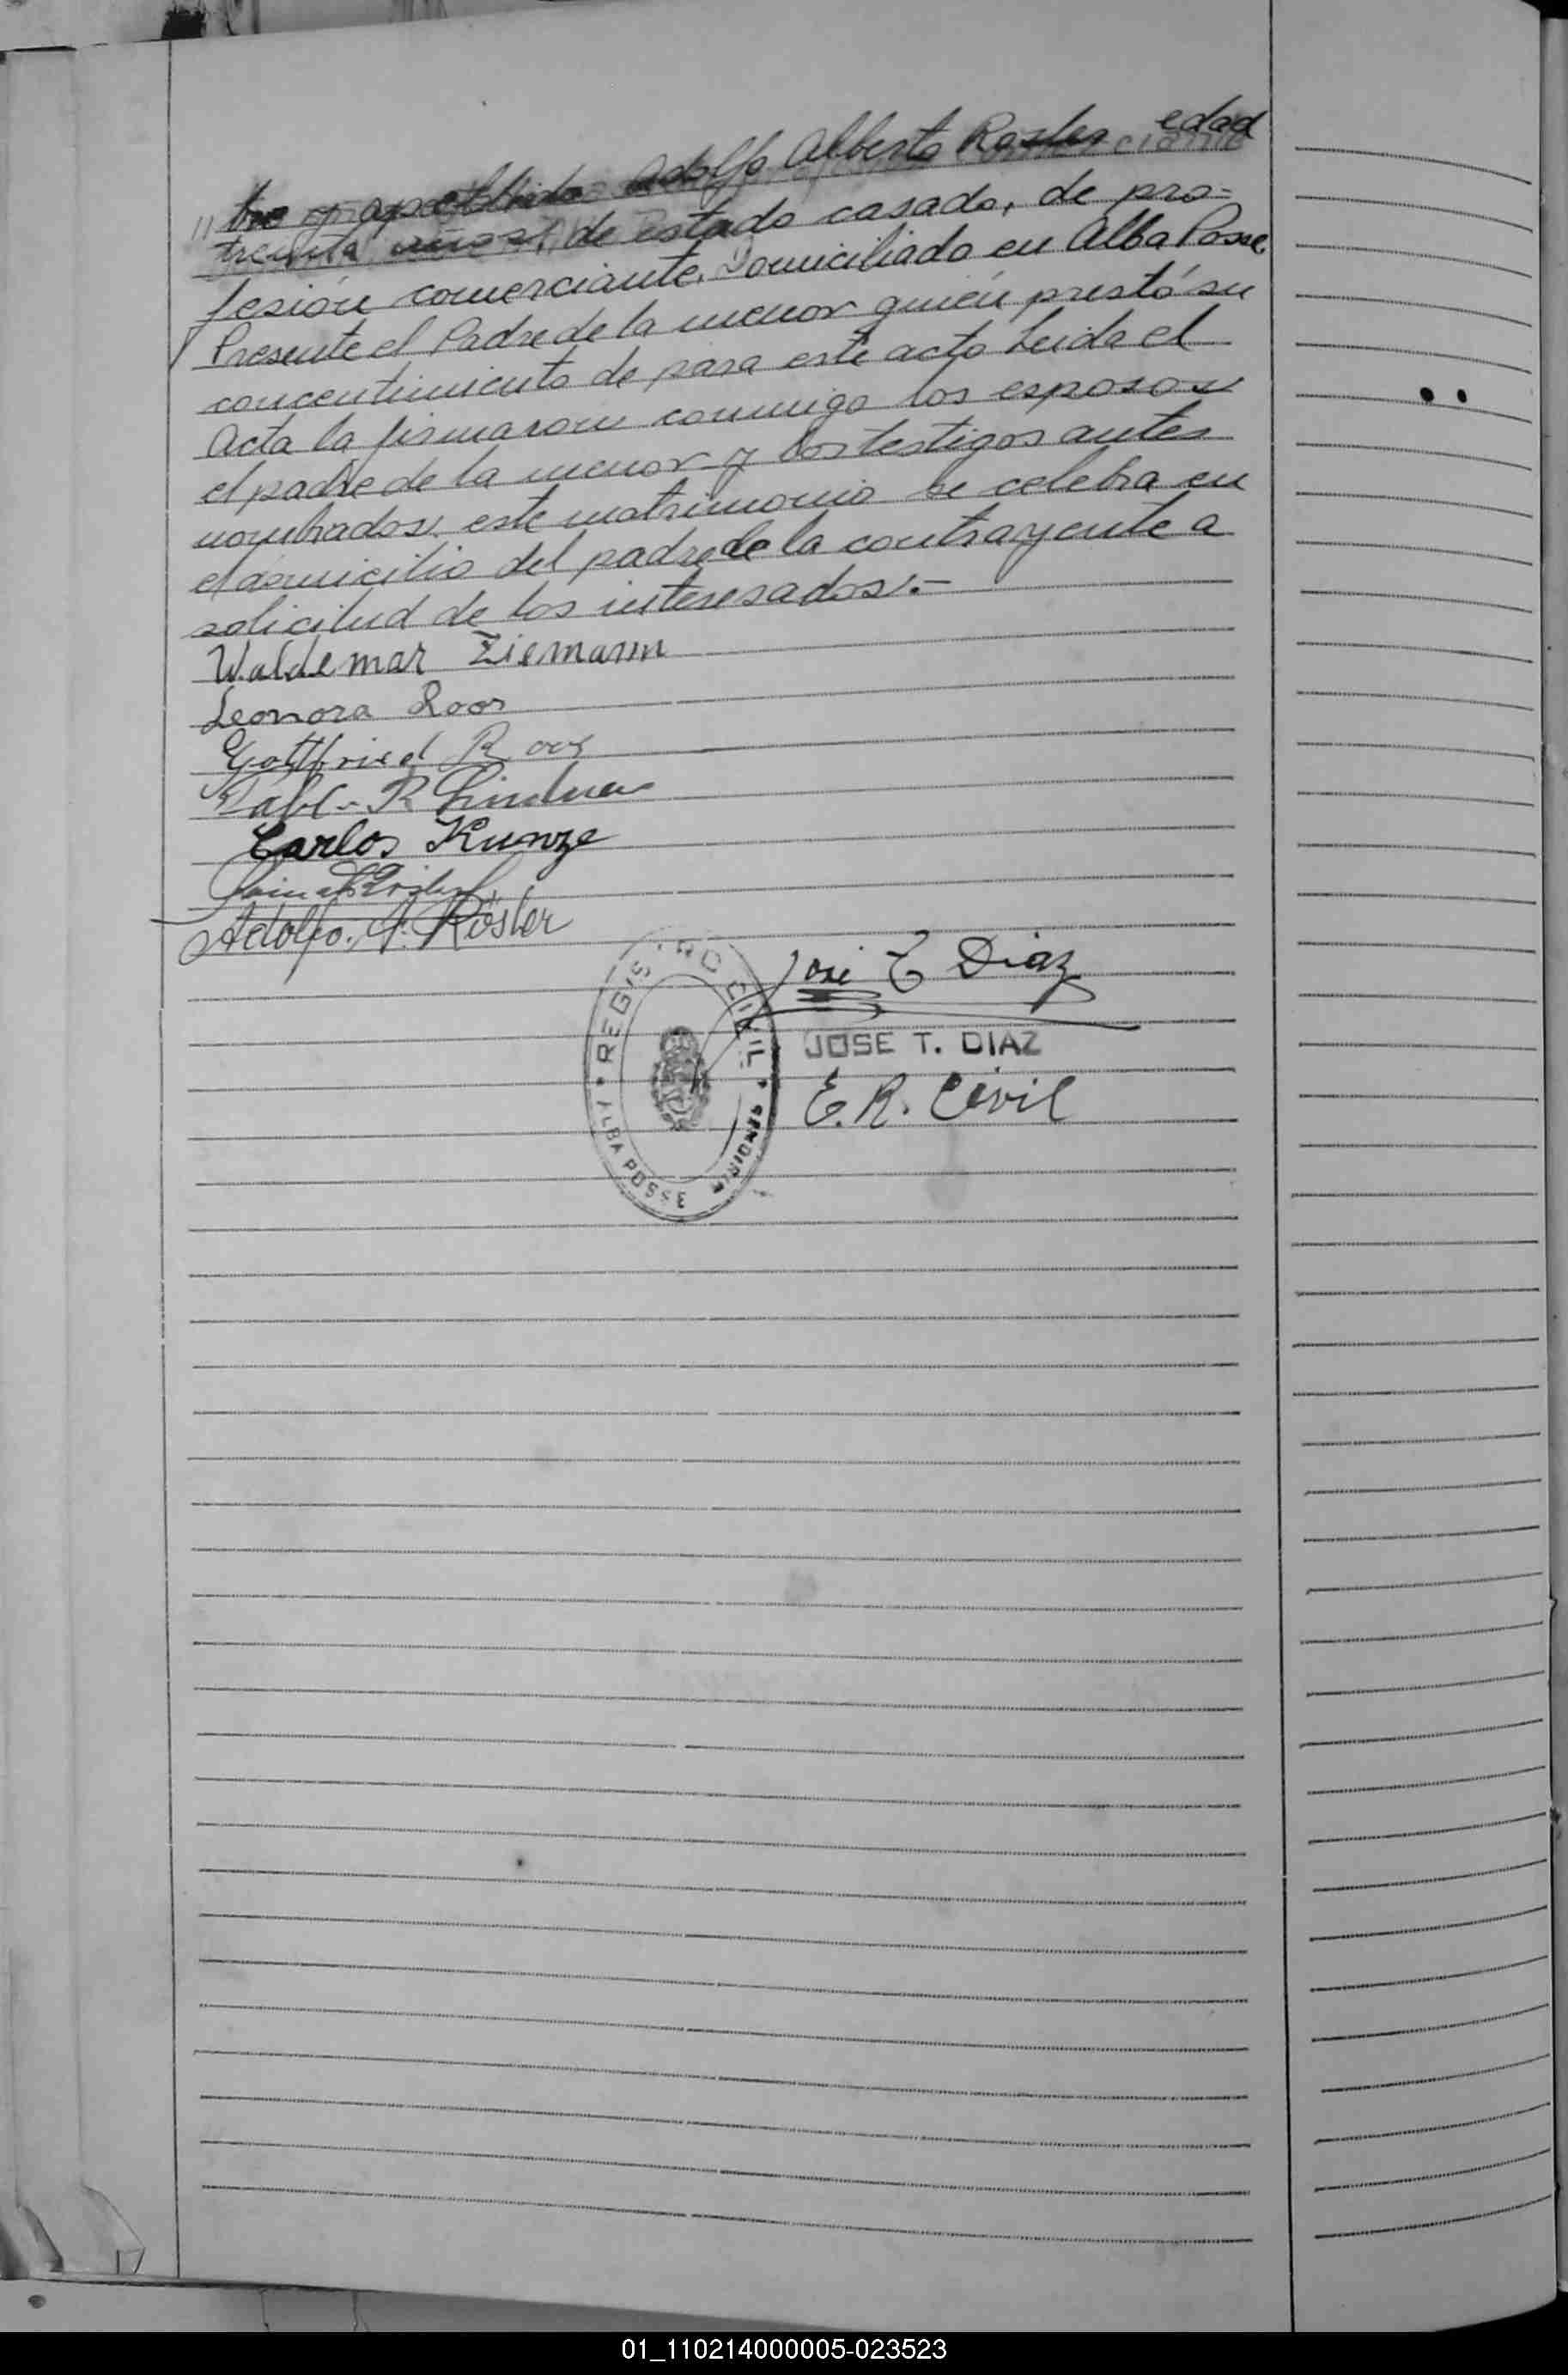 "bre y apellido Adolfo Alberto Rosler edad
treinta años, de estado casado, de pro=
fesión comerciante, Domiciliado en Alba Posse
Presente el Padre de la menor quién prestó su
concentimiento de para este acto Leida el
Acta la firmaron conmigo los esposos
el padre de la menor y los testigos antes
nombrados. este matrimonio se celebra en
el domicilio del padre de la contrayente a
solicitud de los interesados.-
Waldemar Ziemann
Leonora Roos
Gottfried Roos
R
Carlos Kunze
Adolfo. A. Rösler
José T Diaz
REGISTRO CIVIL
ALBA POSSE
JOSE T. DIAZ
E.R. Civil
01_110214000005-023523